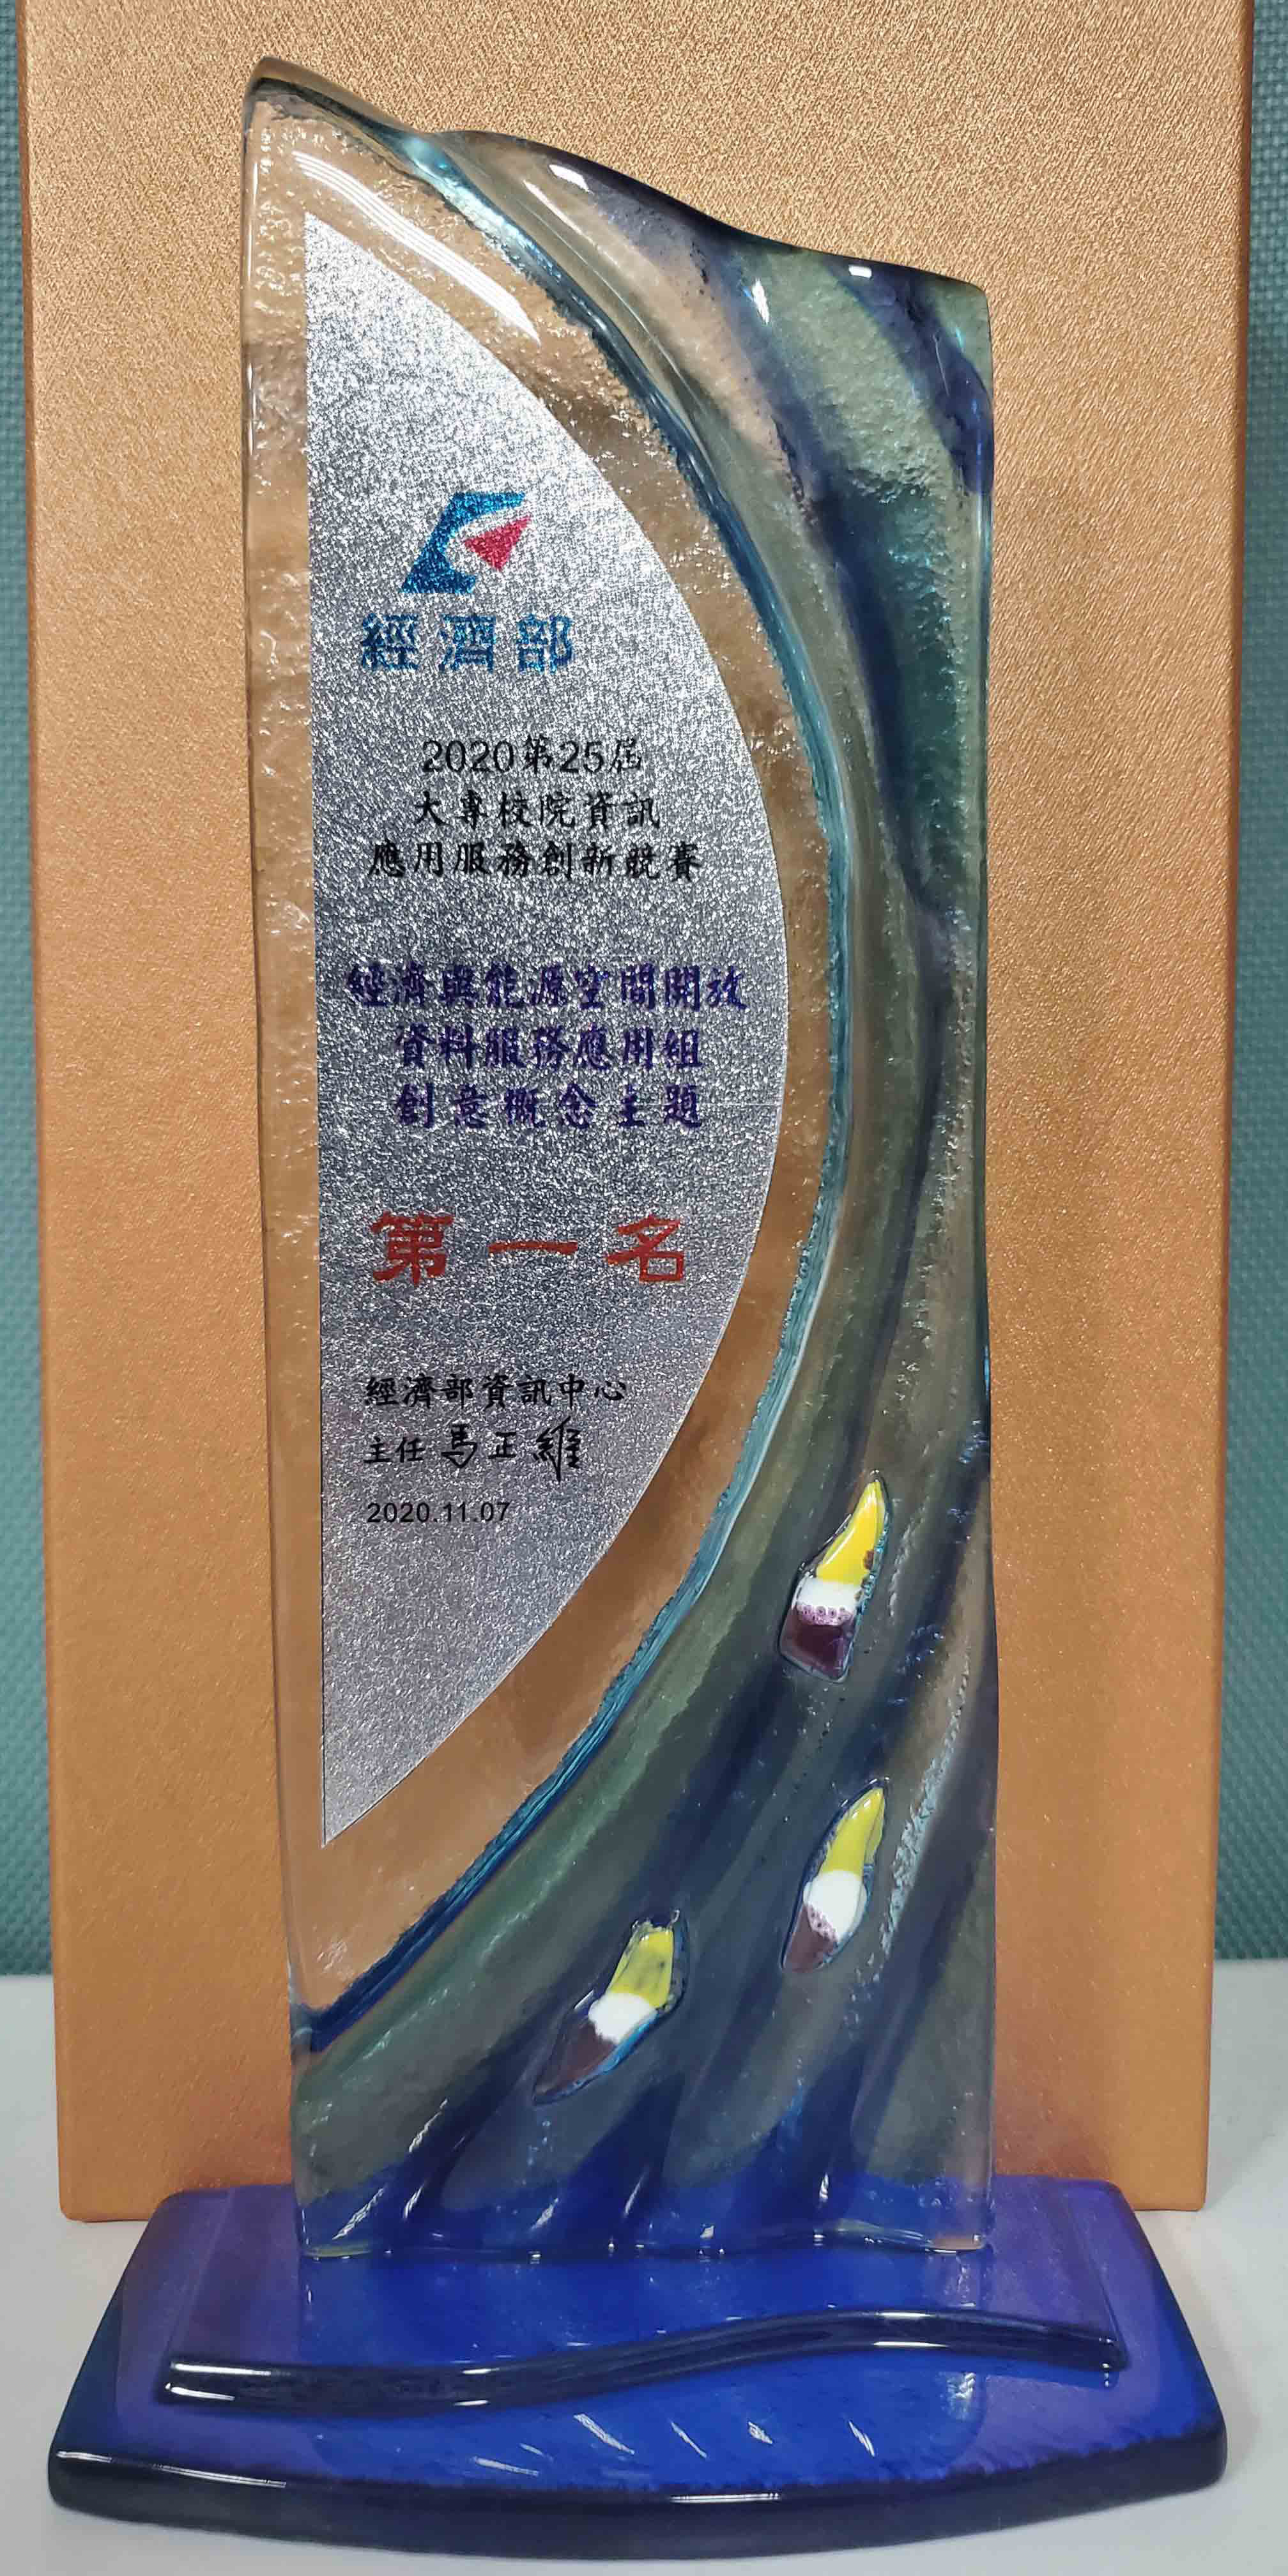 經濟部
2020第25屆
大專校院資訊
應用服務創新競賽
經濟與能源空間開放
資料服務應用組
創意概念主題
第一名
經濟部資訊中心
主任 馬正維
2020.11.07